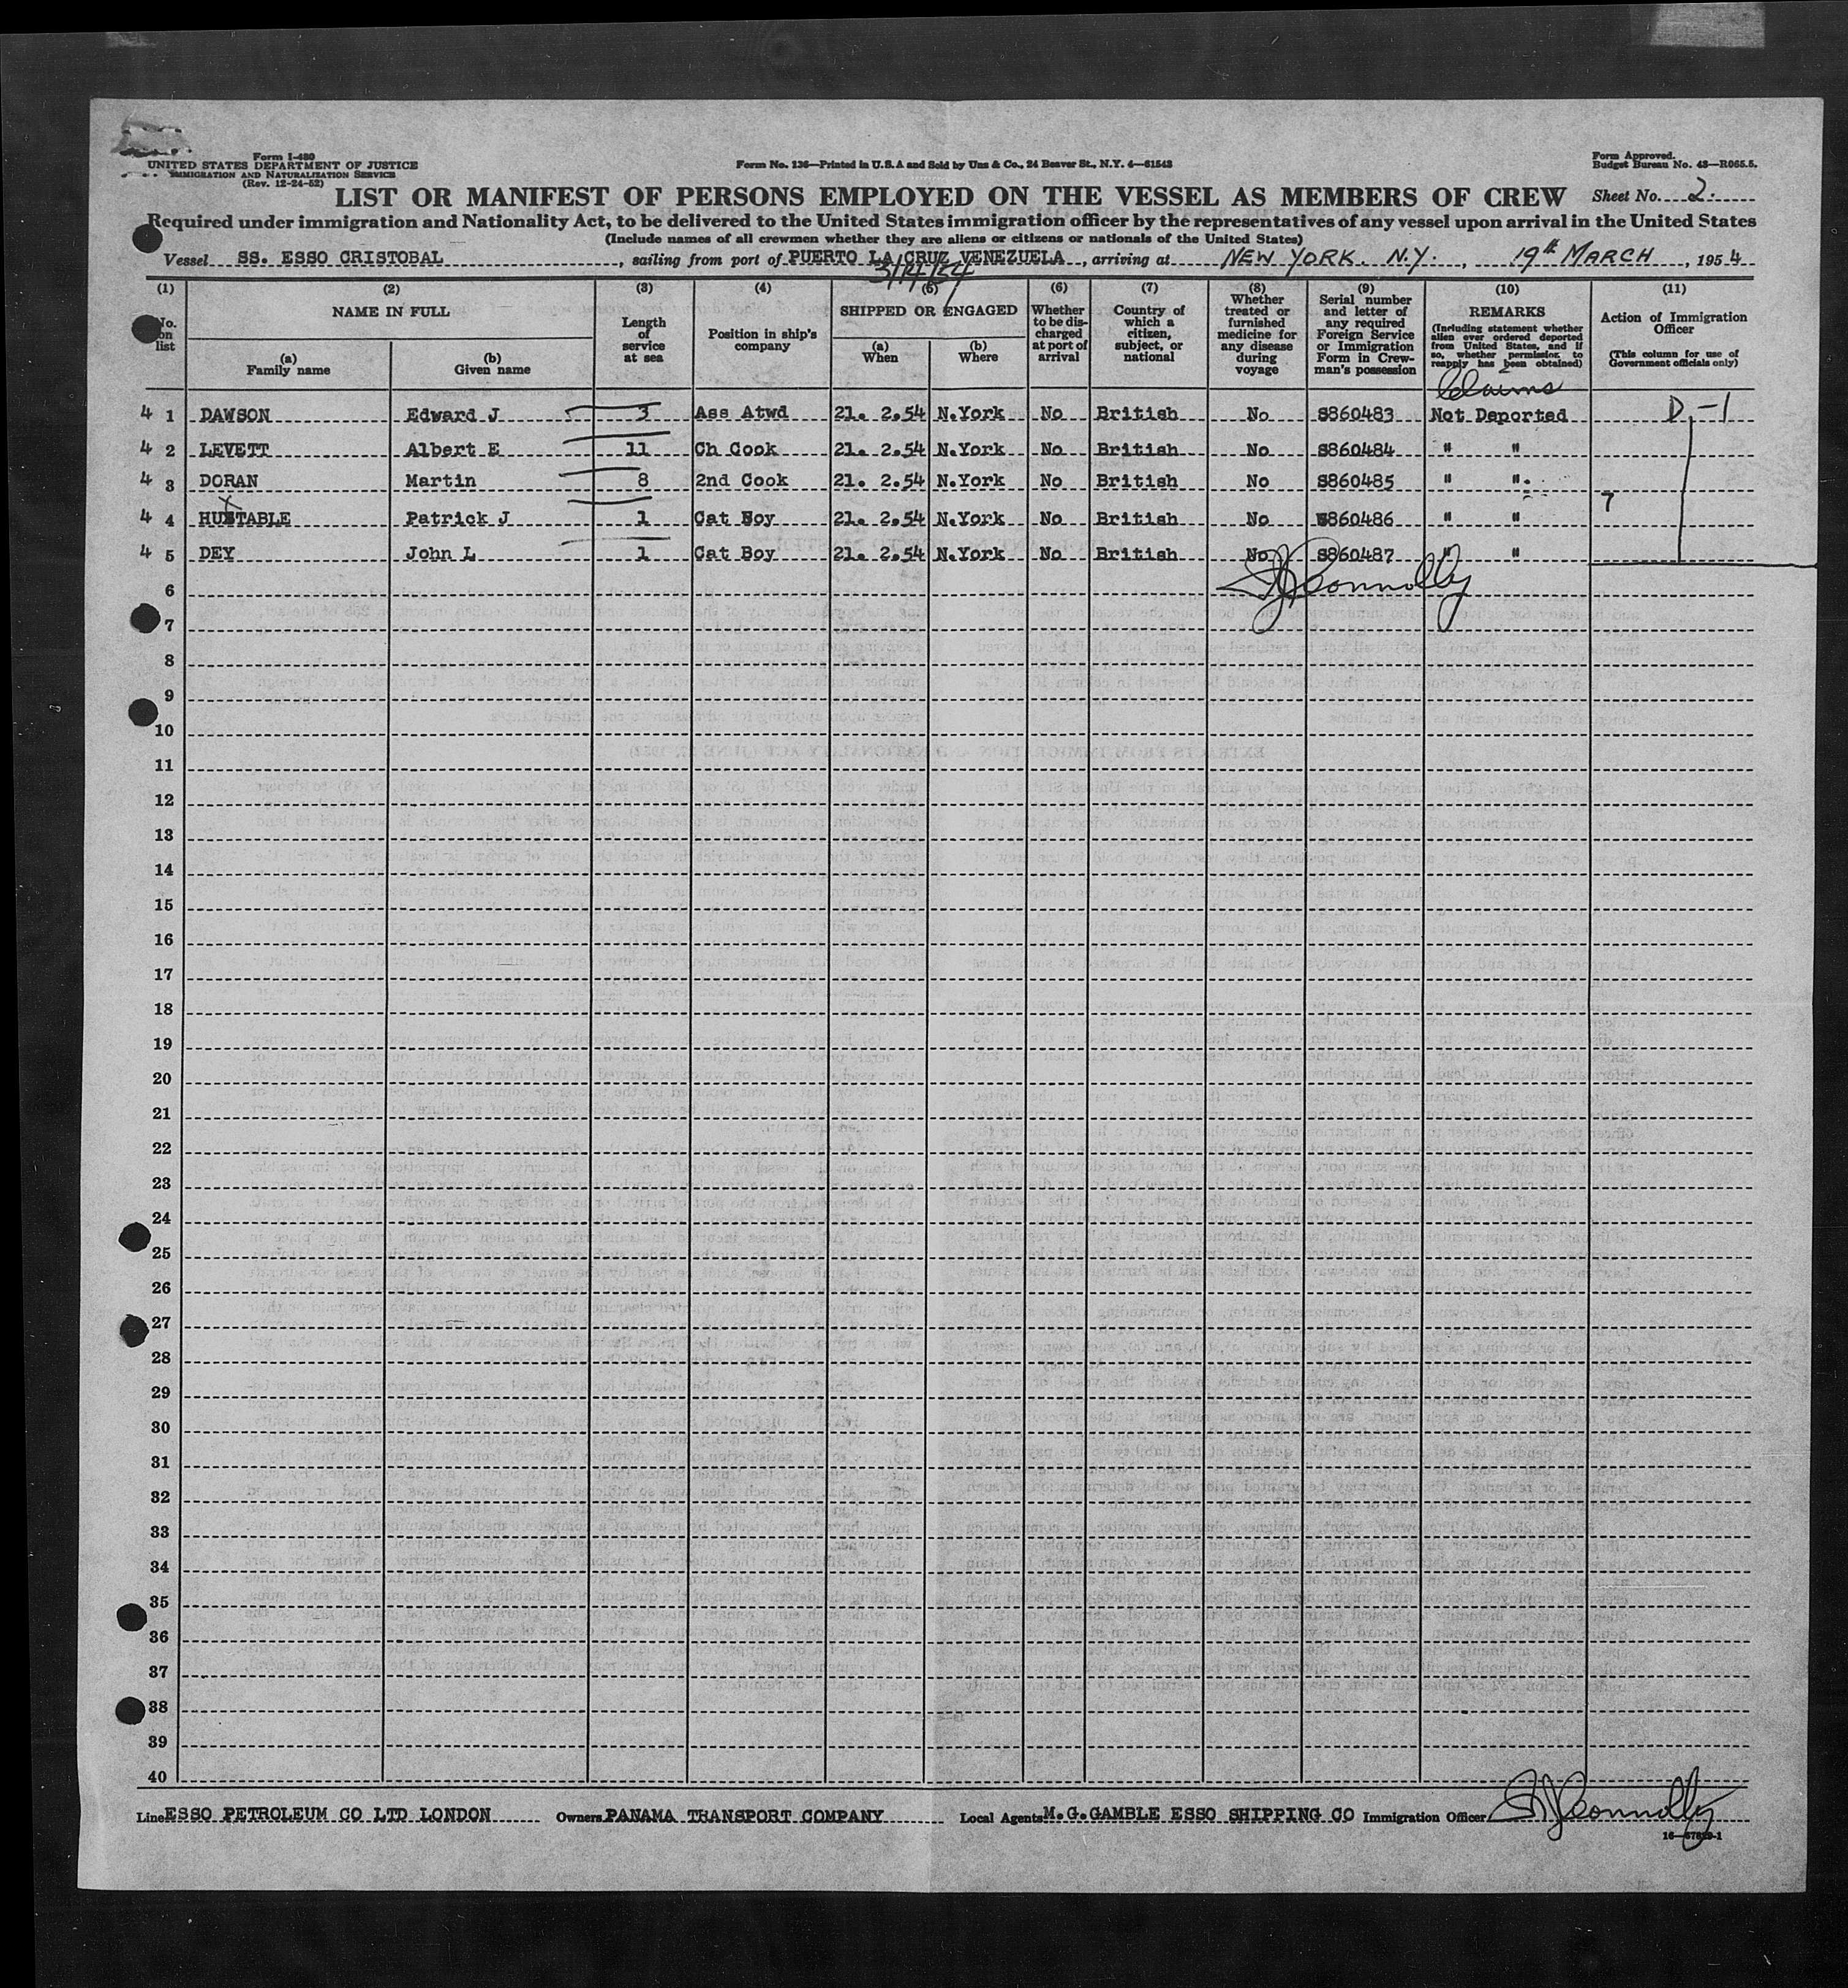 Form I-480
UNITED STATES DEPARTMENT OF JUSTICE
IMMIGRATION AND NATURALIZATION SERVICE
(Rev. 12-24-52)
Form No. 136—Printed in U.S.A and Sold by Unz & Co., 24 Beaver St., N.Y. 4—61543
Form Approved.
Budget Bureau No. 43—R065.5.
LIST OR MANIFEST OF PERSONS EMPLOYED ON THE VESSEL AS MEMBERS OF CREW
Sheet No. 2.
Required under immigration and Nationality Act, to be delivered to the United States immigration officer by the representatives of any vessel upon arrival in the United States
(Include names of all crewmen whether they are aliens or citizens or nationals of the United States)
Vessel SS. ESSO CRISTOBAL, sailing from port of PUERTO LA CRUZ VENEZUELA, arriving at NEW YORK. N.Y., 19th MARCH, 1954
(1) No. on list
(2) NAME IN FULL
(a) Family name
(b) Given name
(3) Length of service at sea
(4) Position in ship's company
(5) SHIPPED OR ENGAGED
(a) When
(b) Where
(6) Whether to be discharged at port of arrival
(7) Country of which a citizen, subject, or national
(8) Whether treated or furnished medicine for any disease during voyage
(9) Serial number and letter of any required Foreign Service or Immigration Form in Crewman's possession
(10) REMARKS
(Including statement whether alien ever ordered deported from United States, and if so, whether permission to reapply has been obtained)
(11) Action of Immigration Officer
(This column for use of Government officials only)
Claims
4 1 DAWSON Edward J 3 Ass Atwd 21. 2.54 N.York No British No S860483 Not Deported D,-1
4 2 LEVETT Albert E 11 Ch Cook 21. 2.54 N.York No British No S860484 " "
4 3 DORAN Martin 8 2nd Cook 21. 2.54 N.York No British No S860485 " "
4 4 HUXTABLE Patrick J 1 Cat Boy 21. 2.54 N.York No British No S860486 " " 7
4 5 DEY John L 1 Cat Boy 21. 2.54 N.York No British No S860487 " "
6 Connolly
7
8
9
10
11
12
13
14
15
16
17
18
19
20
21
22
23
24
25
26
27
28
29
30
31
32
33
34
35
36
37
38
39
40
Line ESSO PETROLEUM CO LTD LONDON Owners PANAMA TRANSPORT COMPANY Local Agents M.G.GAMBLE ESSO SHIPPING CO Immigration Officer Connolly